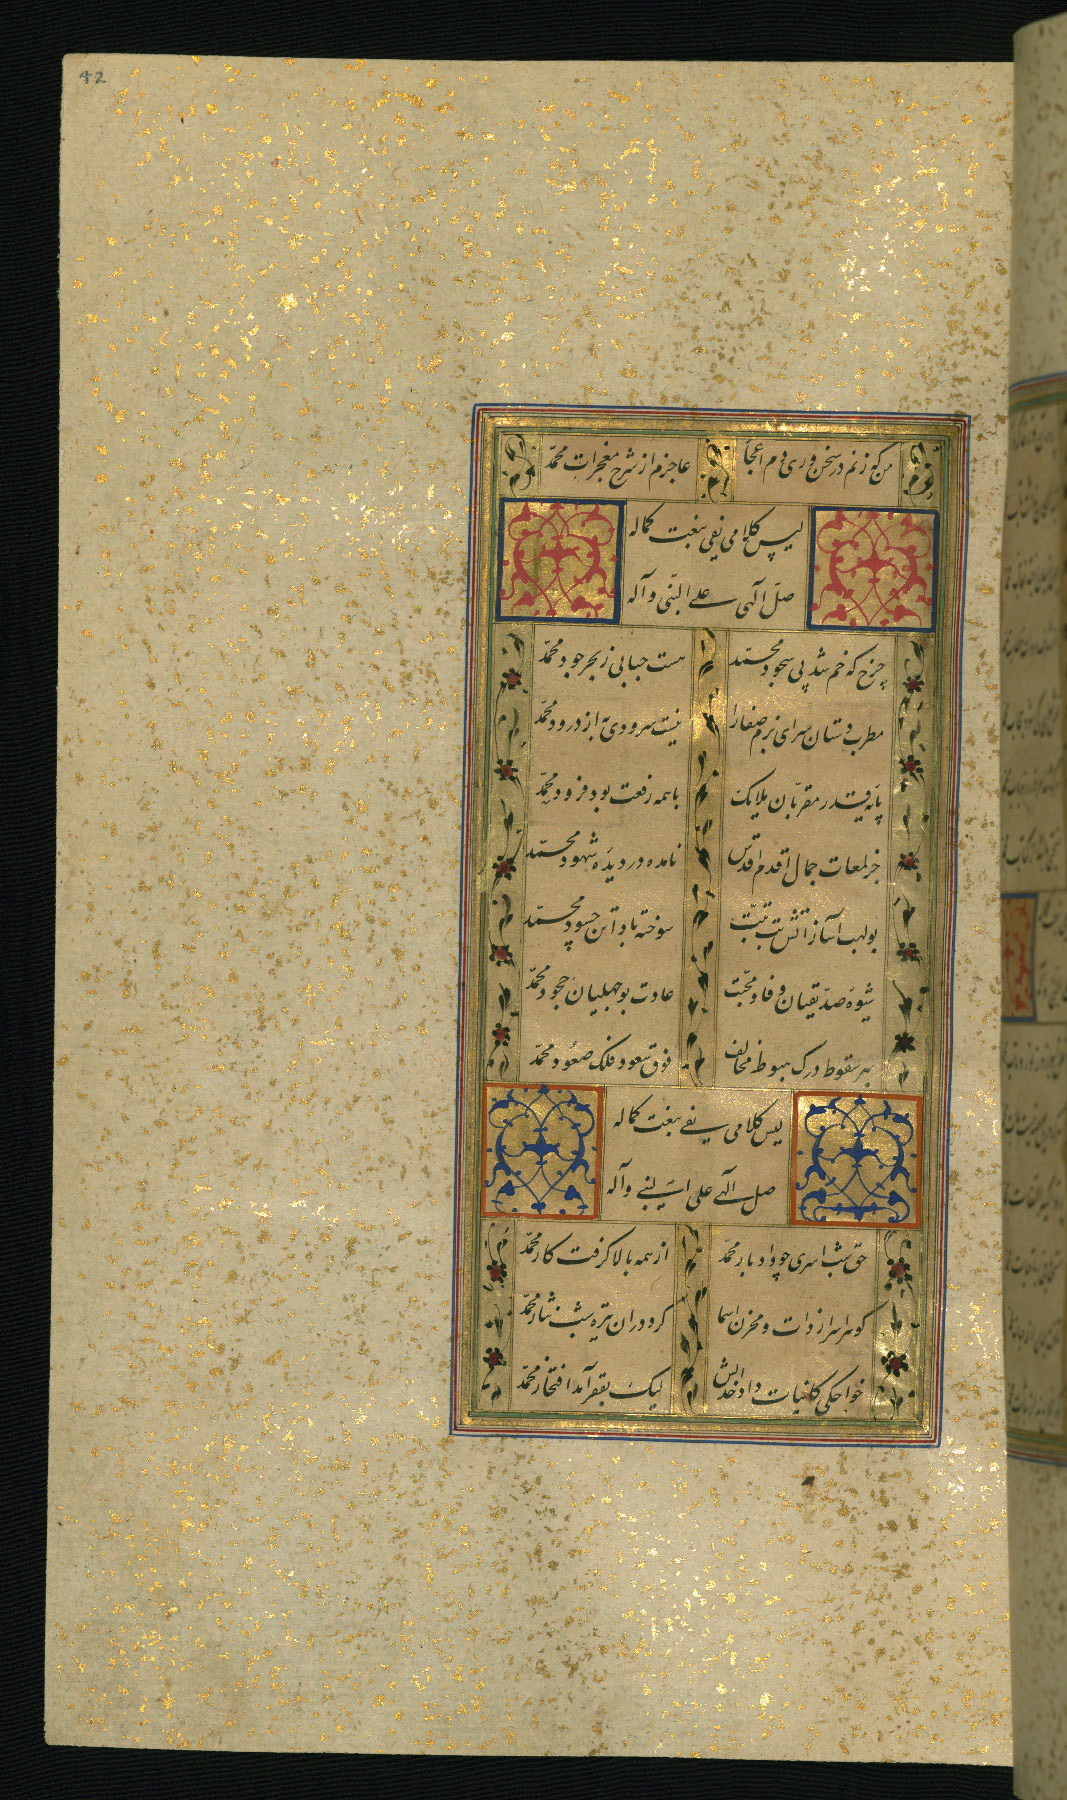 42
من که زنم در سخن وری دم اعجاز عاجزم از شرح معجزات محمّد
لیس کلامی یفی بنعت کماله
صلّ الهی علی النّبی و آله
چرخ که خم شد پی سجود محمّد هست حبابی ز بحر جود محمّد
مطرب دستان سرای بزم صفا را نیست سرودی به از درود محمّد
پایه قدر مقرّبان ملایک با همه رفعت بود فرود محمّد
جز لمعات جمال اقدم اقدس نامده در دیده شهود محمّد
بولهب آسا ز آتش تب تبّت سوخته باد آتن حسود محمّد
شیوه صدّیقیان وفا و محبّت عادت بوجهلیان جحود محمّد
سقوط درک هبوط مخالف فوق سعود فلک صعود محمّد
لیس کلامی یفی بنعت کماله
صل الهی علی النبی و آله
حق شب اسری چو داد بار محمّد از همه بالا گرفت کار محمّد
گوهر اسرار ذات و مخزن اسما کرد در آن تیره شب نثار محمّد
خواجگی کاینات داد خدایش لیک بفقر آمد افتخار محمّد